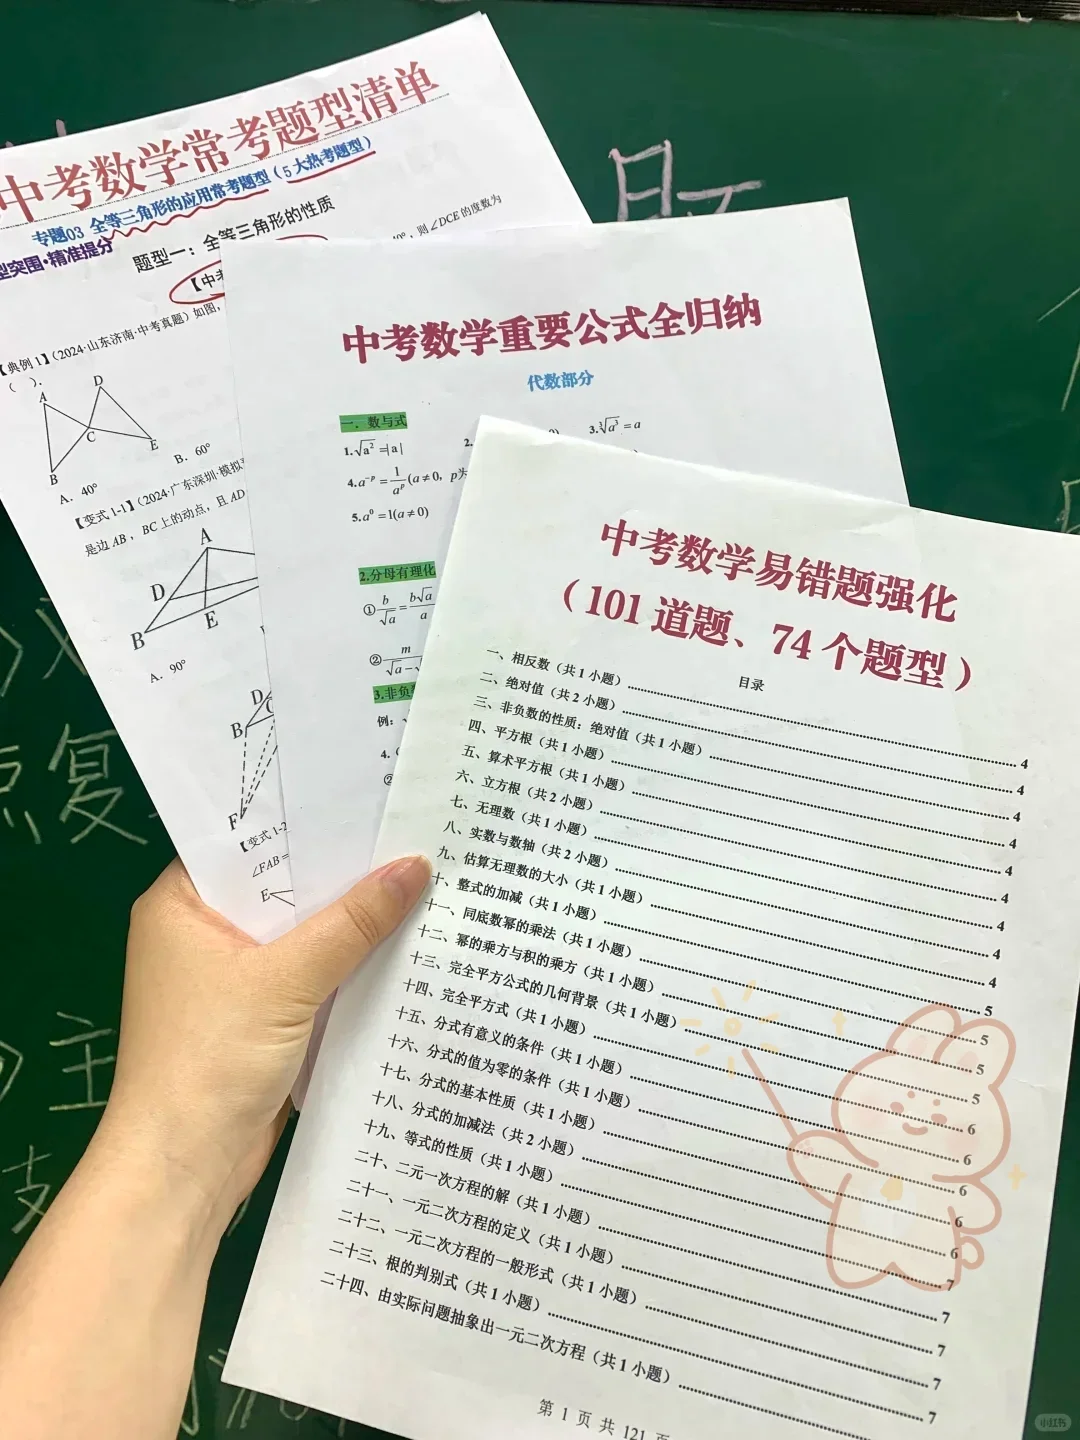 中考数学常考题型清单
专题03 全等三角形的应用常考题型（5大热考题型）
型突围·精准提分
题型一：全等三角形的性质
【中考
【典例1】（2024·山东济南·中考真题）如图，
，则∠DCE的度数为
（ ）.
A
D
C
B
E
A．40°
B．60°
【变式1-1】（2024·广东深圳·模拟
是边AB，BC上的动点，且AD
A
D
B
E
A．90°
D
B
F
【变式1-2
∠FAB=
E
中考数学重要公式全归纳
代数部分
一．数与式
1.√a²=|a|
2.
3.∛a³=a
4.a⁻ᵖ=1/aᵖ(a≠0，p为
5.a⁰=1(a≠0)
2.分母有理化
①b/√a=b√a/a
②m/√a-√
3.非负数
例：
4.
②
中考数学易错题强化
（101道题、74个题型）
目录
一、相反数（共1小题）4
二、绝对值（共2小题）4
三、非负数的性质：绝对值（共1小题）4
四、平方根（共1小题）4
五、算术平方根（共1小题）4
六、立方根（共2小题）4
七、无理数（共1小题）4
八、实数与数轴（共2小题）4
九、估算无理数的大小（共1小题）4
十、整式的加减（共1小题）5
十一、同底数幂的乘法（共1小题）5
十二、幂的乘方与积的乘方（共1小题）5
十三、完全平方公式的几何背景（共1小题）5
十四、完全平方式（共1小题）6
十五、分式有意义的条件（共1小题）6
十六、分式的值为零的条件（共1小题）6
十七、分式的基本性质（共1小题）6
十八、分式的加减法（共2小题）6
十九、等式的性质（共1小题）7
二十、二元一次方程的解（共1小题）7
二十一、一元二次方程的定义（共1小题）7
二十二、一元二次方程的一般形式（共1小题）7
二十三、根的判别式（共1小题）7
二十四、由实际问题抽象出一元二次方程（共1小题）
第 1 页 共 121 页
复
主
支
小红书